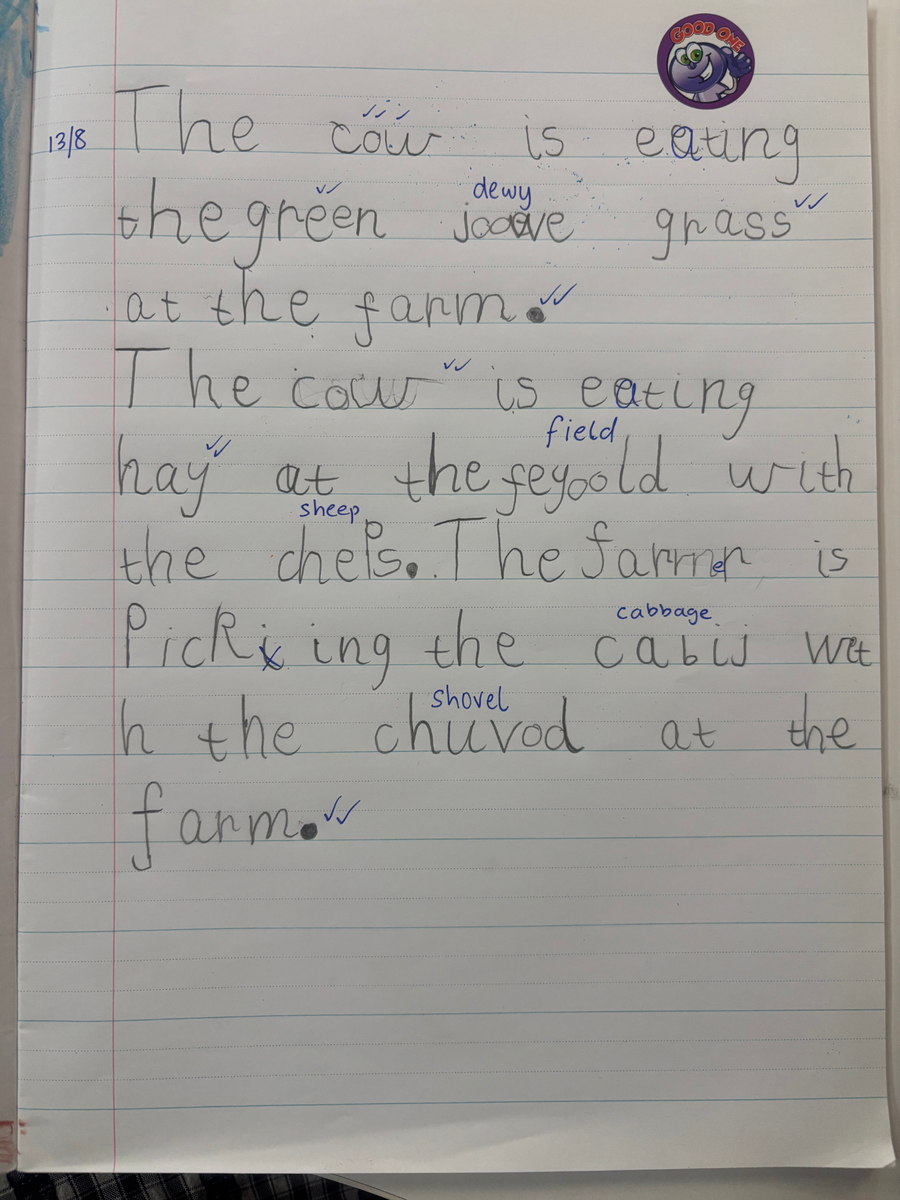 GOOD ONE
13/8 The cow is eating
dewy
the green jooave grass
at the farm.
The cow is eating
field
hay at the feyoold with
sheep
the cheps. The farmer is
cabbage
Picking the cabij wit
shovel
h the chuvod at the
farm.